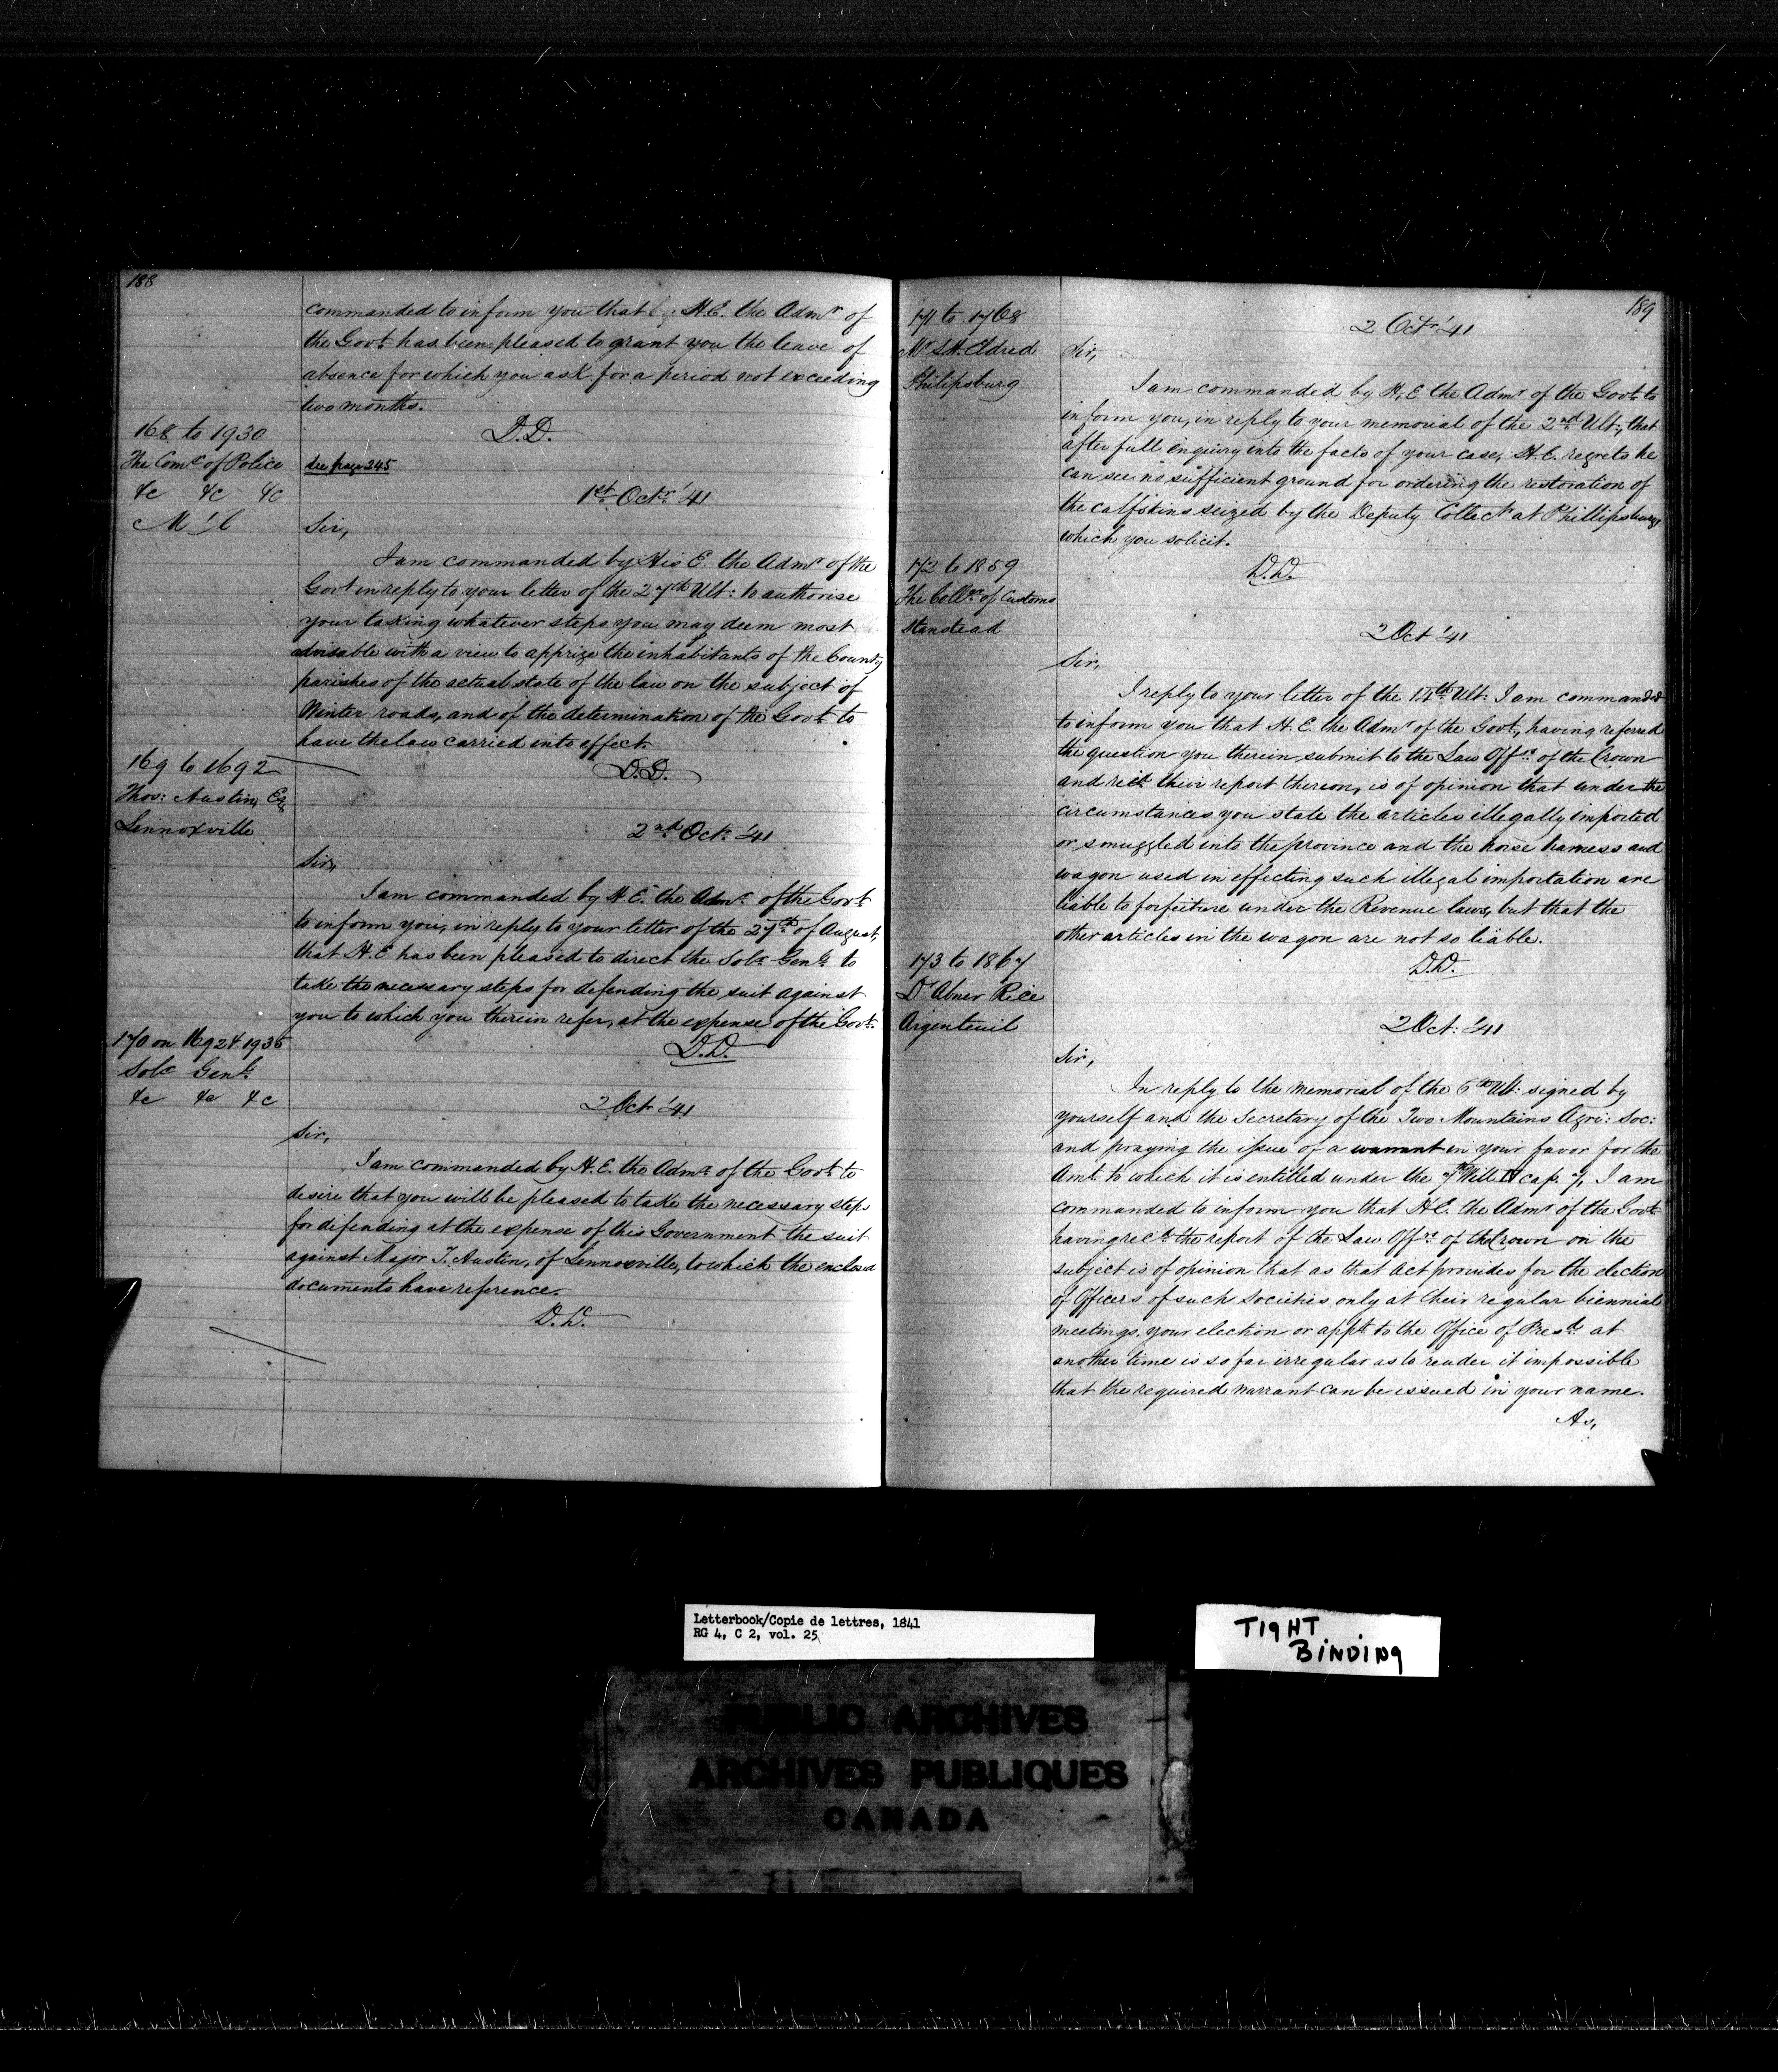 188
commanded to inform you that by H.E. the Admr of
the Govt has been pleased to grant you the leave of
absence for which you ask for a period not exceeding
two months.
D.D.
168 to 1930
The Comr of Police
&c &c &c
M'l
See page 245
1st Octr '41
Sir,
I am commanded by His E. the Admr of the
Govt in reply to your letter of the 27th Ult: to authorise
your taking whatever steps you may deem most
advisable with a view to apprize the inhabitants of the County
parishes of the actual state of the law on the subject of
Winter roads, and of the determination of the Govt to
have the law carried into effect.
D.D.
169 to 1692
Thos: Austin, Esq
Lennoxville
2nd Oct. '41
Sir,
I am commanded by H.E. the Admr of the Govt
to inform you, in reply to your letter of the 27th of August,
that H.E has been pleased to direct the Solr Genl to
take the necessary steps for defending the suit against
you to which you therein refer, at the expense of the Govt.
D.D.
170 on 1692 & 1936
Solr Genl
&c &c &c
2 Oct '41
Sir,
I am commanded by H.E. the Admr of the Govt to
desire that you will be pleased to take the necessary steps
for defending at the expense of this Government the suit
against Major T. Austin, of Lennoxville, to which the enclosed
documents have reference.
D.D.
189
171 to 1768
Mr S.H. Eldred
Philipsburg
2 Octr '41
Sir,
I am commanded by H.E the Admr of the Govt to
inform you, in reply to your memorial of the 2nd Ult:, that
after full enquiry into the facts of your case, H.E. regrets he
can see no sufficient ground for ordering the restoration of
the calfskins seized by the Deputy Collectr at Phillipsburg,
which you solicit.
D.D.
172 to 1859
The Collr of Customs
Stanstead
2 Oct '41
Sir,
I reply to your letter of the 14th Ult: I am commanded
to inform you that H.E. the Admr of the Govt, having referred
the question you therein submit to the Law Offrs of the Crown
and recd their report thereon, is of opinion that under the
circumstances you state the articles illegally imported
or smuggled into the province and the horse harness and
wagon used in effecting such illegal importation are
liable to forfeiture under the Revenue laws, but that the
other articles in the wagon are not so liable.
D.D.
173 to 1867
Dr Abner Rice
Argenteuil
2 Oct: '41
Sir,
In reply to the memorial of the 6th Ult: signed by
yourself and the Secretary of the Two Mountains Agri: Soc:
and praying the issue of a warrant in your favor for the
Amt to which it is entitled under the Will IV cap. 7, I am
commanded to inform you that H.E. the Admr of the Govt
having recd the report of the Law Offrs of the Crown on the
subject is of opinion that as that Act provides for the election
of Officers of such Societies only at their regular biennial
meetings, your election or appt to the Office of Presdt at
another time is so far irregular as to render it impossible
that the required warrant can be issued in your name.
As,
Letterbook/Copie de lettres, 1841
RG 4, C 2, vol. 25
TIGHT
BINDING
PUBLIC ARCHIVES
ARCHIVES PUBLIQUES
CANADA